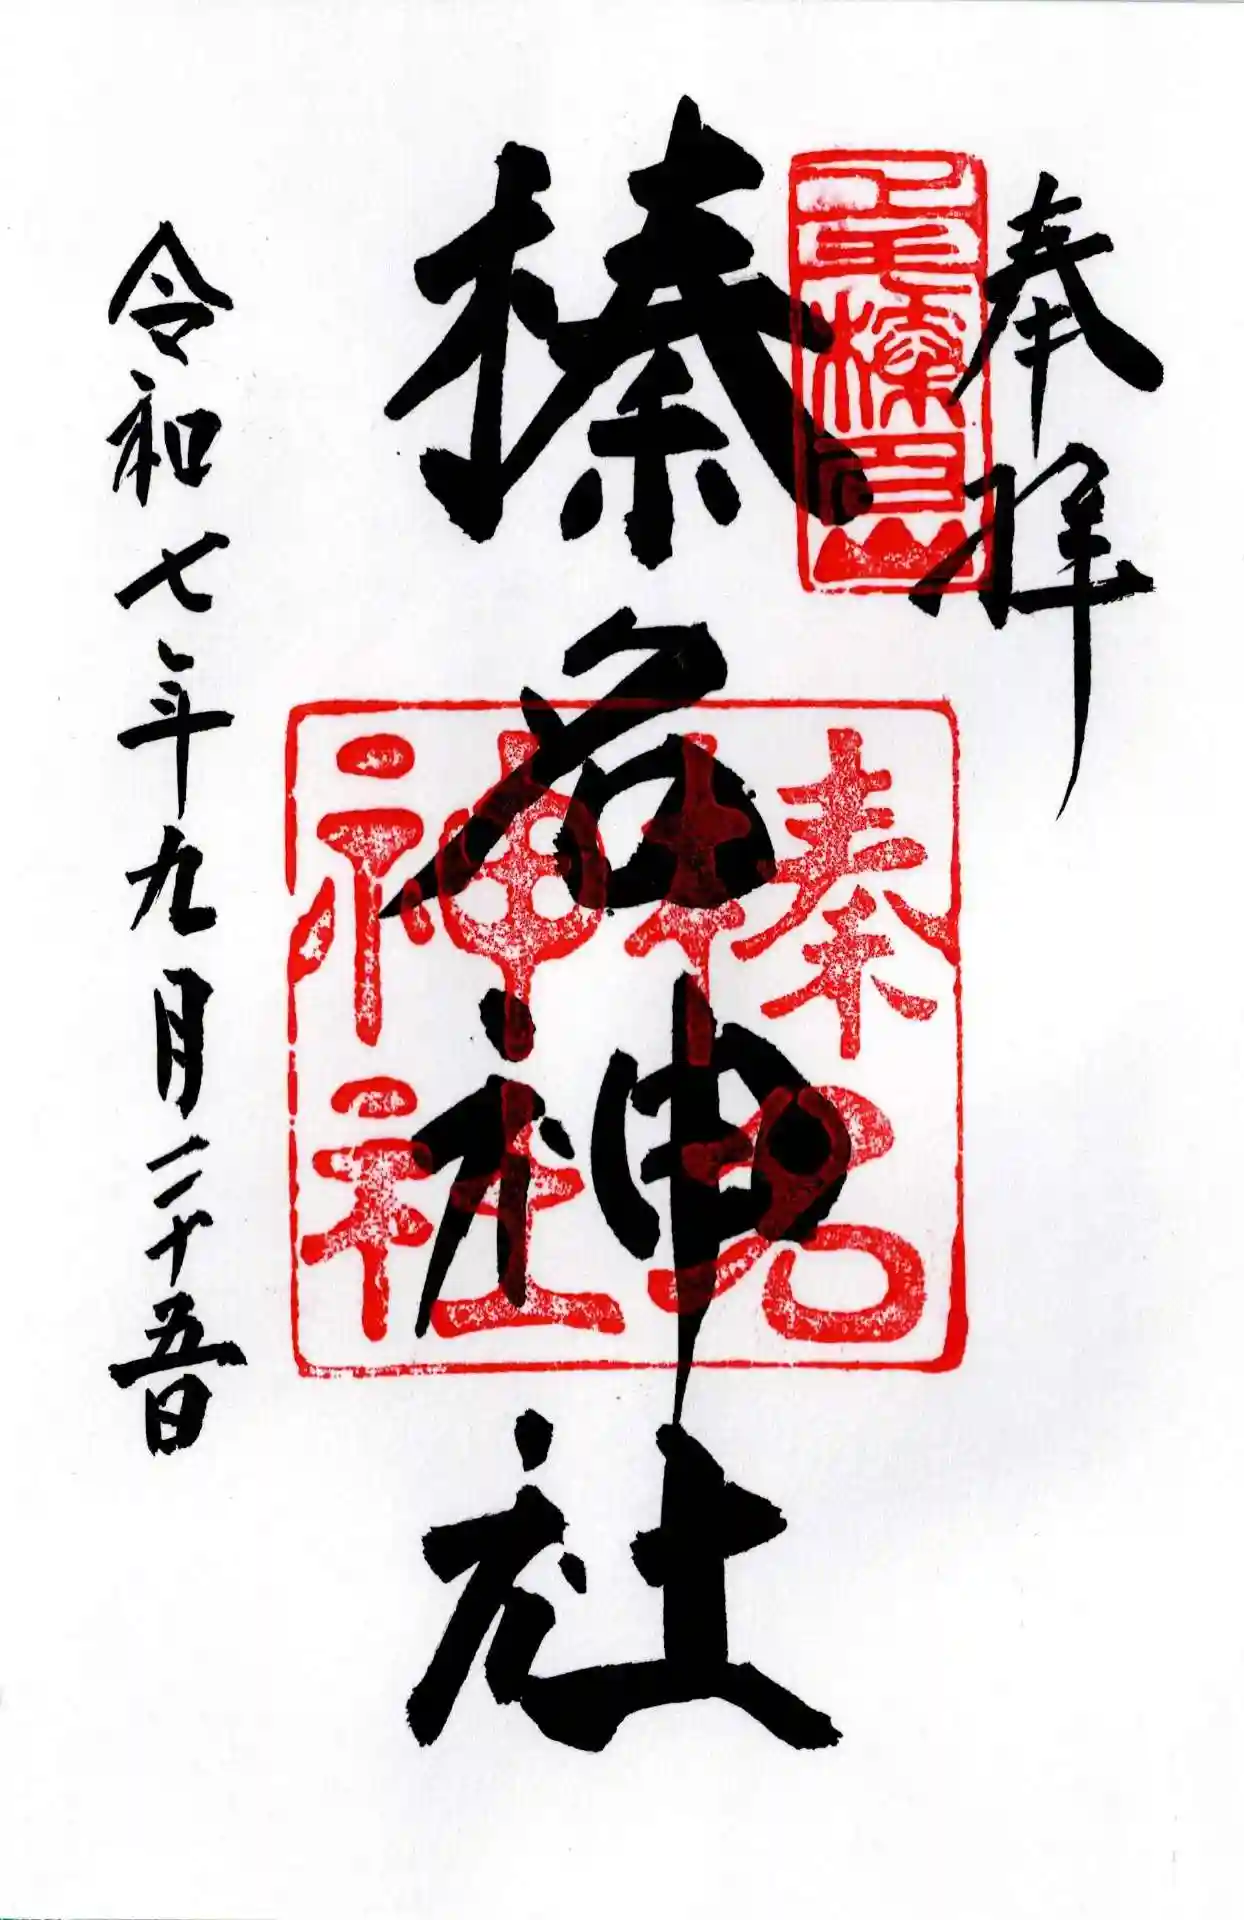 奉拝
榛名神社
榛名神社
令和七年九月二十五日